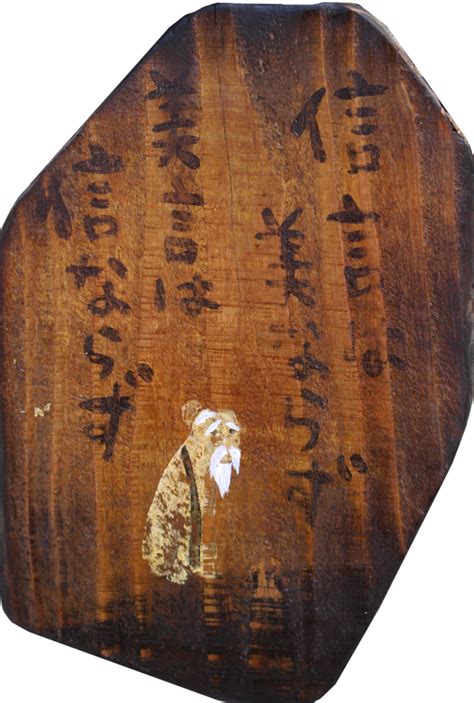 信言は
美ならず
美言は
信ならず